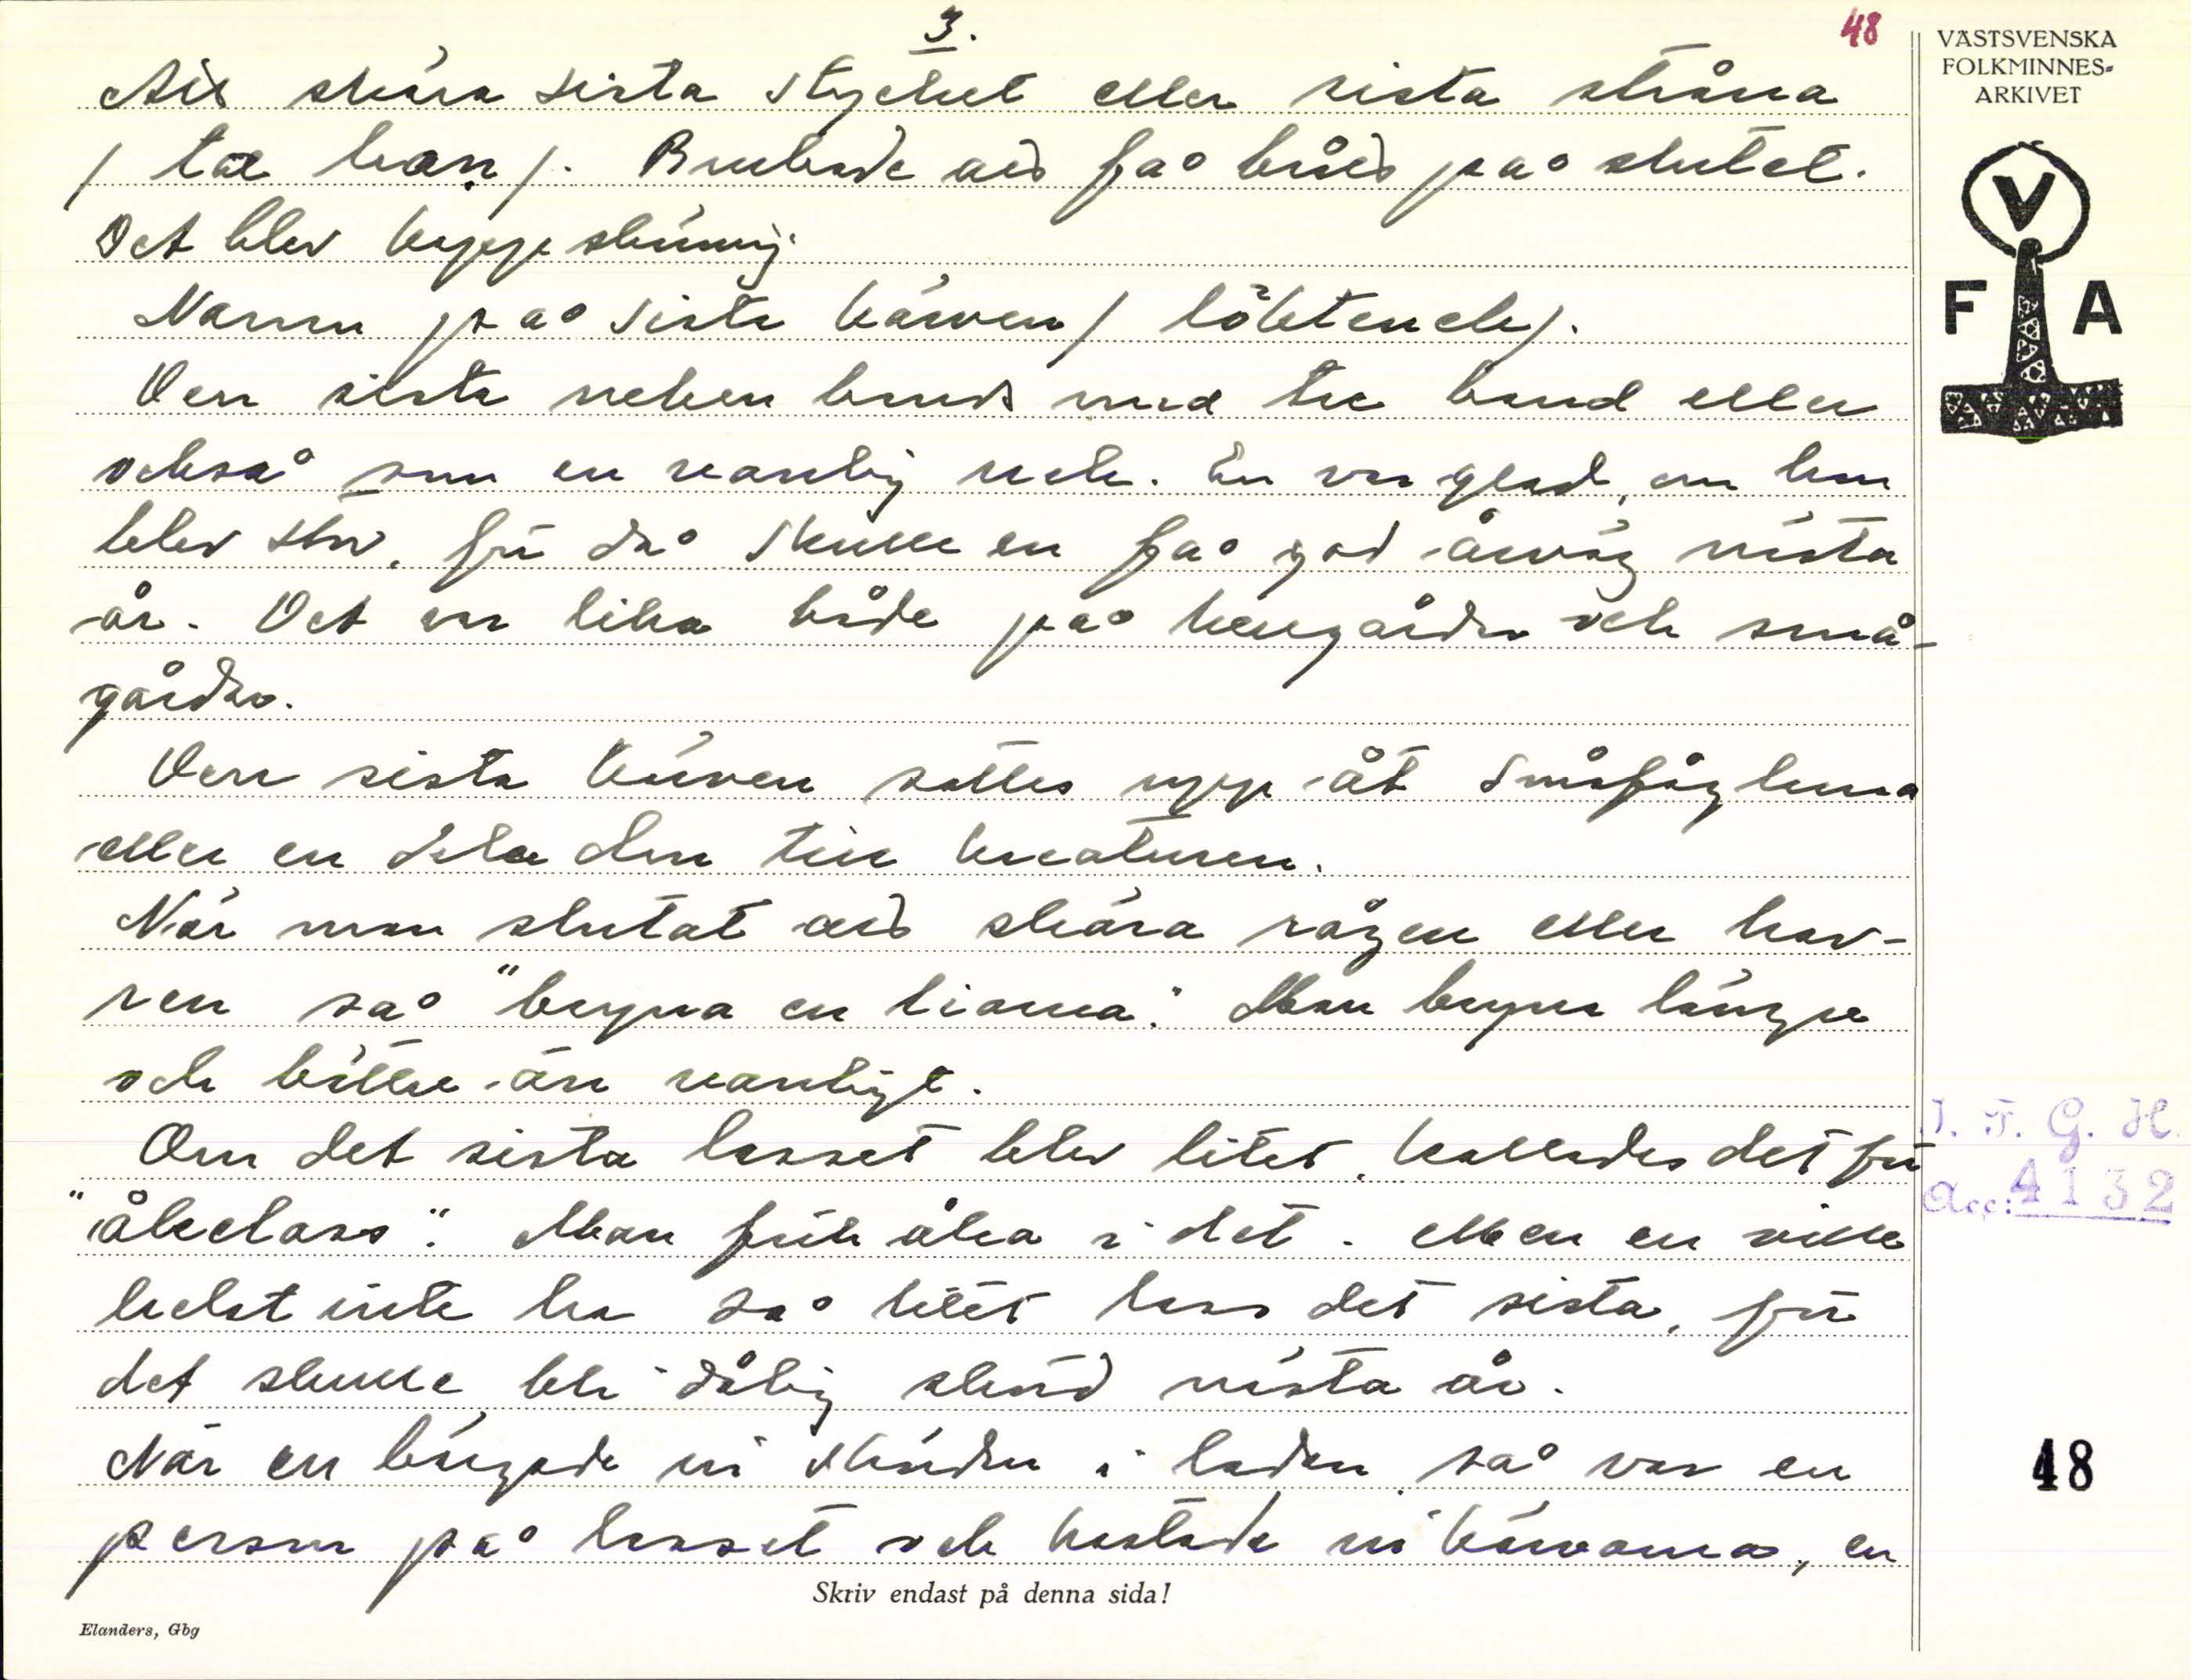 3.
48
VÄSTSVENSKA
FOLKMINNES-
ARKIVET
V
F A
Att skära sista stycket eller sista stråna
/ ta haren /. Brukade att få bråd på slutet.
Det blev kapp
Namn på sista kärven /
Den sista neken bands med tre band eller
också som en vanlig nek. En var glad, om han
blev stor, för då skulle en få god årväg nästa
år. Det var lika både på herrgårdar och små-
gårdar.
Den sista kärven sattes upp åt småfåglarna
eller en dela den till kreaturen.
När man slutat att skära rågen eller hav-
ren så "bryna en liarna". Man bryna längre
och bättre än vanligt.
Om det sista lasset blev litet, kallades det för
"åkelass". Man fick åka i det. Men en ville
helst inte ha så litet lass det sista, för
det skulle bli dålig skörd nästa år.
När en bärgade in skörden i ladan så var en
person på lasset och kastade in kärvarna, en
J. F. G. H.
Acc: 4132
48
Skriv endast på denna sida!
Elanders, Gbg